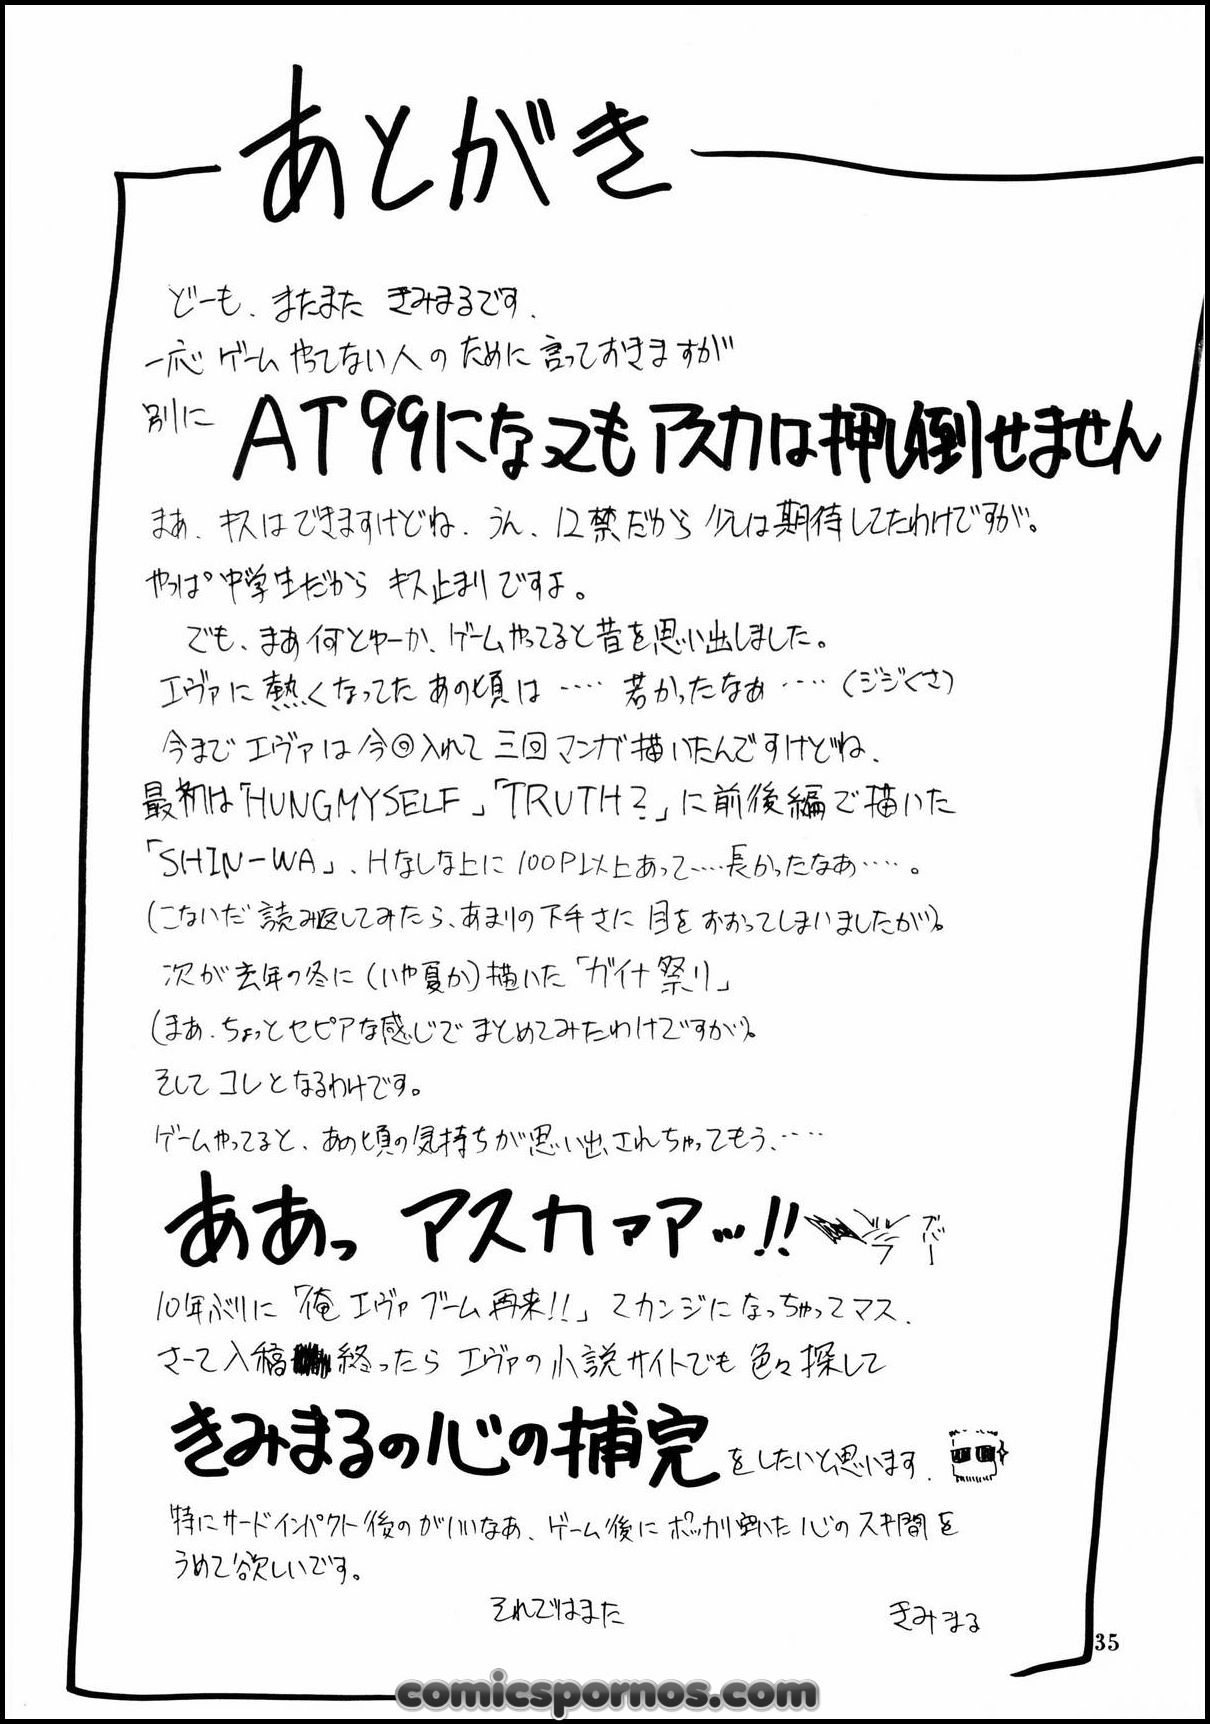 あとがき
どーも、またまた きみまるです、
一応 ゲームやってない人のために言っておきますが
別に AT99になってもアスカは押し倒せません
まあ、キスはできますけどね、うん、12禁だから少しは期待してたわけですが。
やっぱ中学生だから キス止まりですよ。
でも、まあ何とゆーか、ゲームやってると昔を思い出しました。
エヴァに熱くなってた あの頃は‥‥ 若かったなあ‥‥(ジジくさ)
今まで エヴァは今回入れて 三回マンガ描いたんですけどね、
最初は「HUNGMYSELF」「TRUTH?」に前後編で描いた
「SHIN-WA」、Hなしな上に100P以上あって‥‥長かったなあ‥‥。
(こないだ読み返してみたら、あまりの下手さに 目をおおってしまいましたが)。
次が去年の冬に(いや夏か)描いた「ガイナ祭り」
(まあ、ちょっとセピアな感じで まとめてみたわけですが)。
そして コレとなるわけです。
ゲームやってると、あの頃の気持ちが思い出されちゃってもう、‥‥
ああっ アスカァアッ!!
10年ぶりに「俺エヴァブーム再来!!」てカンジになっちゃってマス、
さーて入稿 終ったら エヴァの小説サイトでも 色々探して
きみまるの心の補完をしたいと思います、
特にサードインパクト後のがいいなあ、ゲーム後にポッカリ空いた心のスキ間を
うめて欲しいです。
それではまた
きみまる
35
comicspornos.com